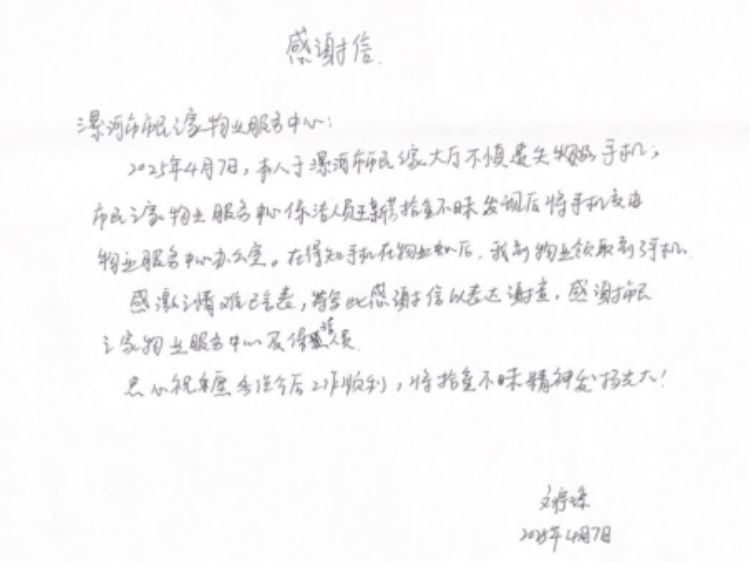 感谢信.
漯河市市民之家物业服务中心:
2025年4月7日,本人于漯河市市民之家大厅不慎遗失物品手机;
市民之家物业服务中心保洁人员王拾金不昧发现后将手机交由
物业服务中心办公室。在得知手机在物业后,我到物业领取到了手机.
感激之情难已言表,特写此感谢信以表达谢意,感谢市民
之家物业服务中心及保洁人员.
忠心祝愿各位今后工作顺利,将拾金不昧精神发扬光大!
2025年4月7日